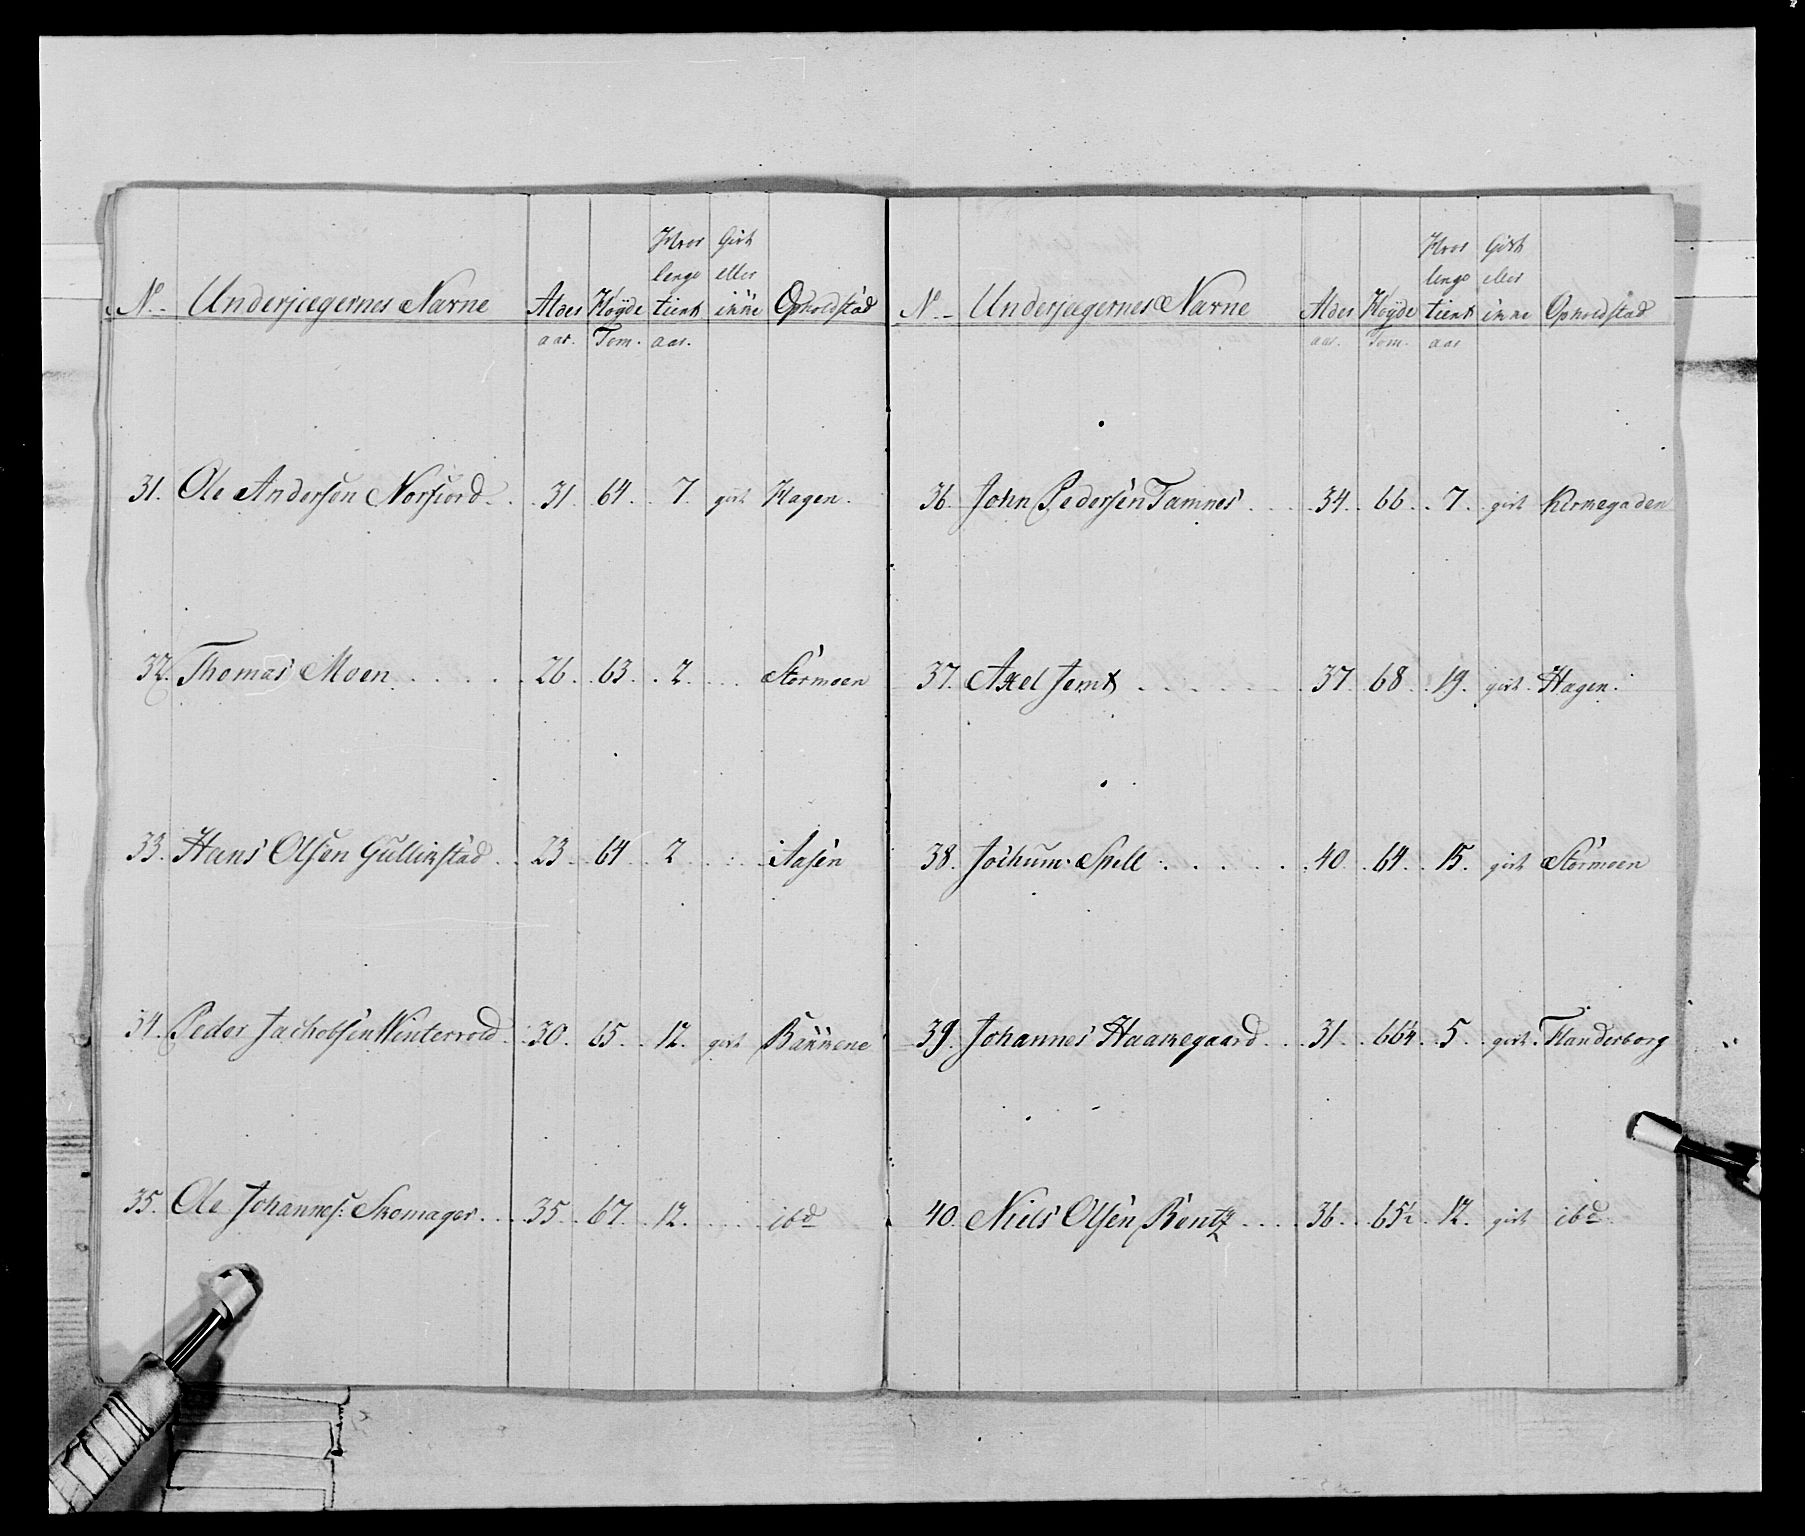 Hvor Gift
lenge eller
No - Underjægernes Navne Alder Høyde tient ikke Opholdstad
aar. Tom. aar.
31. Ole Andersen Norfiord . . 31. 64. . 7. gift Hagen.
32. Thomas Moen . . . . . 26. 63. . 2. . . . Stormoen
33. Hans Olsen Gullikstad . . 23. 64 . 2 . . . Aasen
34. Peder Jachobsen Winterrold . . 30. 65. . 12. gift Bakkene
35. Ole Johannes: Skomager . . . 35. 67. . 12. . . . ibd
Hvor Gift
lenge eller
No - Underjægernes Navne Alder Høyde tient ikke Opholdstad
aar. Tom. aar
36. John Pedersen Tamnes . . . 34. . 66. . 7. gift Kirkegaden
37. Axel Jemt . . . . . 37. 68 . 19. gift . Hagen.
38. Jochum Spell . . . . . 40 . 64. . 15. gift Stormoen
39. Johannes Haakegaard . . 31. . 66¼ . 5 . gift . Flanderborg
40. Niels Olsen Bentz . . . . 36. . 65½ . 12. gift ibd